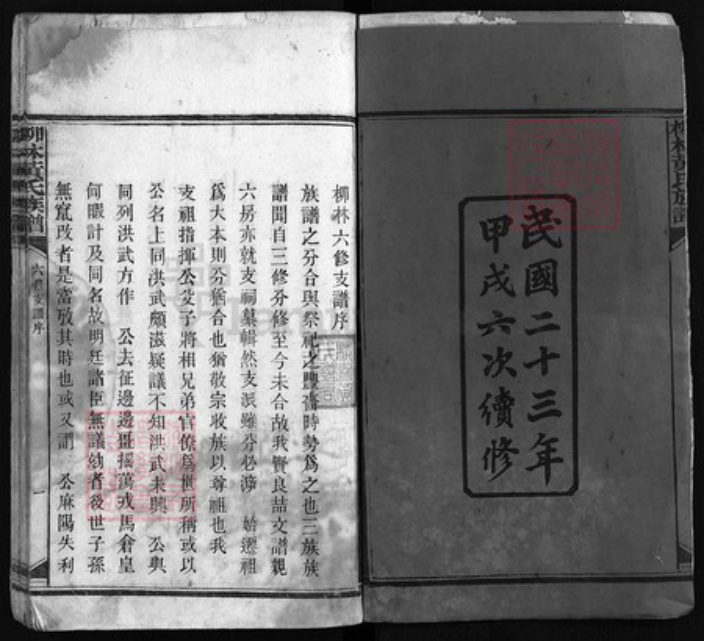 民國二十三年
甲戌六次續修
柳林黃氏族譜
柳林六修支譜序
族譜之分合與祭祀之豐嗇時勢爲之也三族族
譜聞自三修分修至今未合故我賢良喆文譜親
六房亦就支祠纂輯然支派雖分必溯 始遷祖
爲大本則分猶合也猶敬宗收族以尊祖也我
支祖指揮公父子將相兄弟官僚爲世所稱或以
公名上同洪武頗滋疑議不知洪武未興 公與
同列洪武方作 公去征邊邊匪擾蕩戎馬倉皇
何暇計及同名故明廷諸臣無議劾者後世子孫
無竄改者是當攷其時也或又謂 公麻陽失利
柳林黃氏族譜
六修支譜序
一